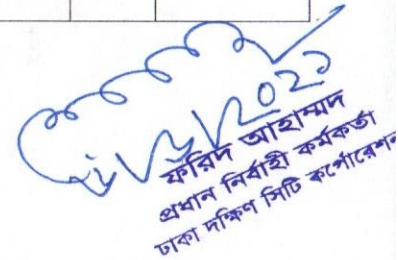 ফরিদ আহাম্মদ
প্রধান নির্বাহী কর্মকর্তা
ঢাকা দক্ষিণ সিটি কর্পোরেশন